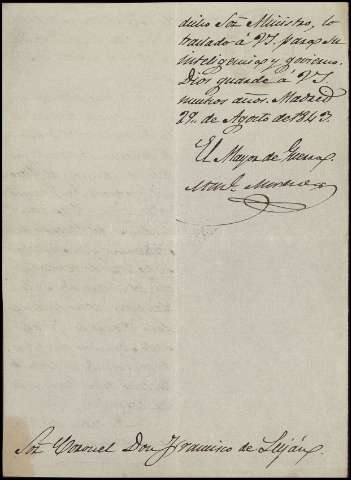 dicho Sor Ministro, lo
traslado á VS. para su
inteligencia y govierno.
Dios guarde á VS
muchos años. Madrid
29. de Agosto de 1843.
El Mayor de Guerra
Sor Coronel Don Francisco de Luján